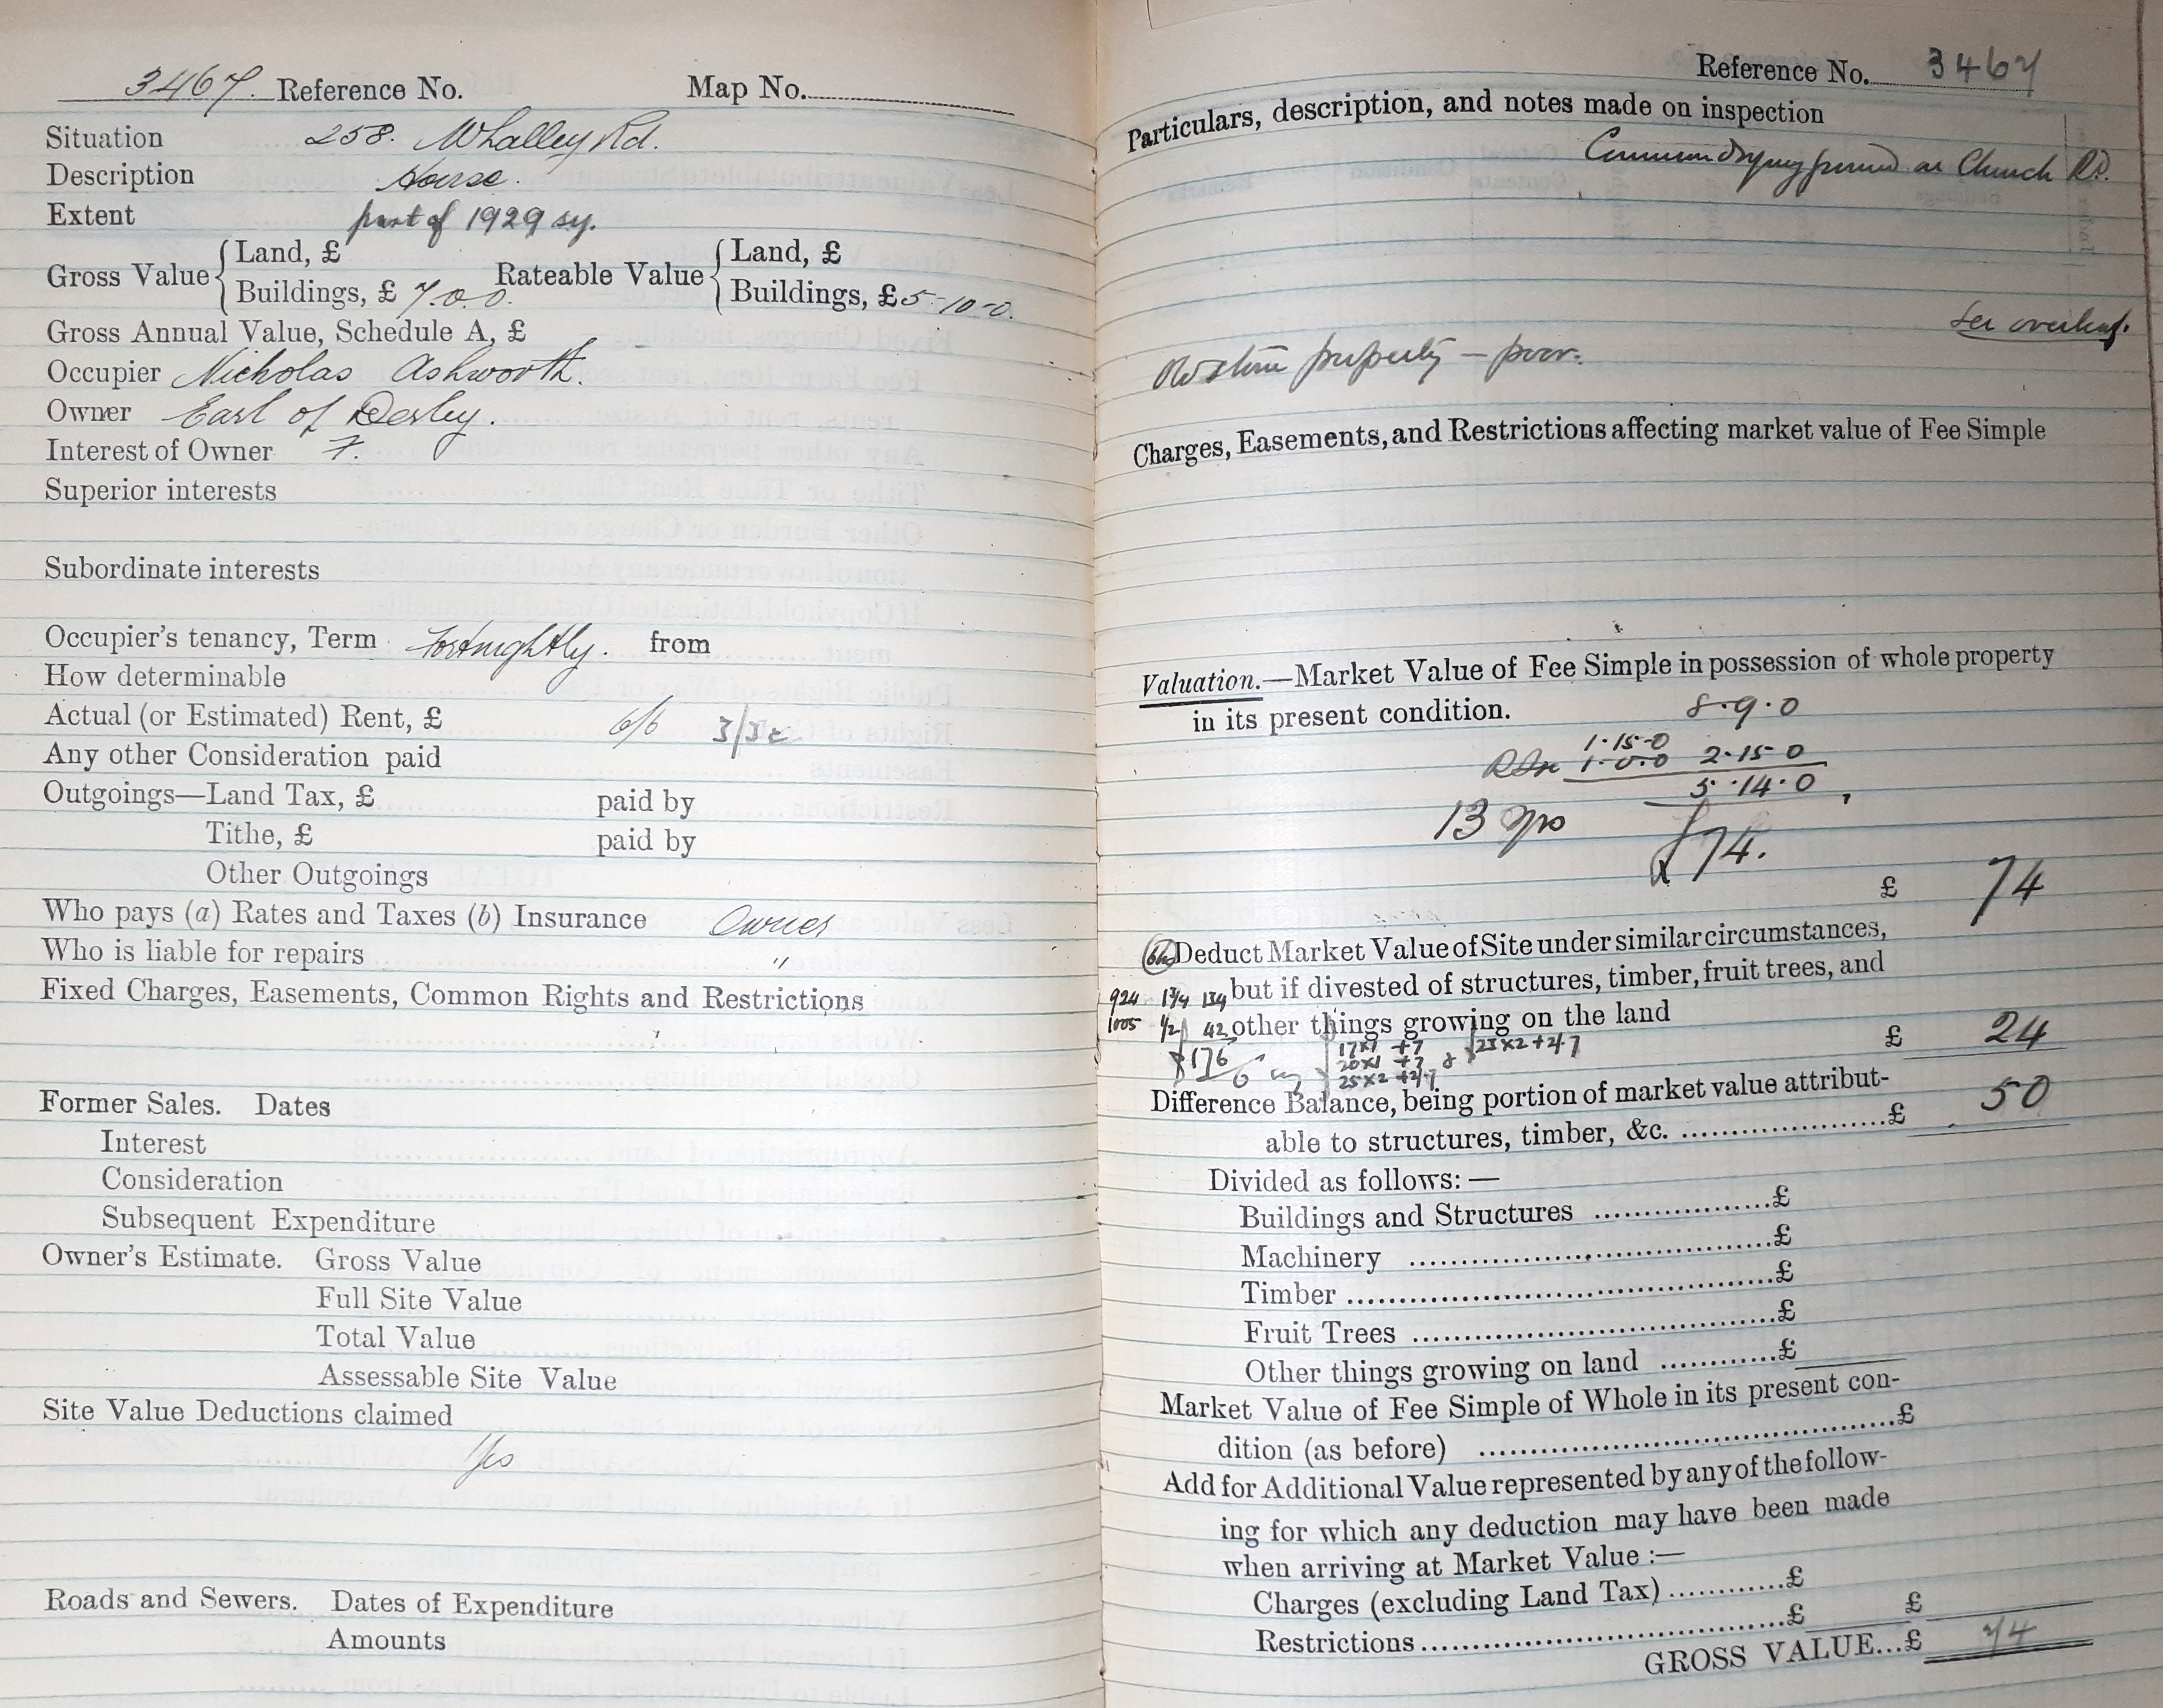 3467. Reference No. Map No.
Situation 258. Whalley Rd.
Description House.
Extent part of 1929 sy.
Gross Value { Land, £ Rateable Value { Land, £
Buildings, £ 7.0.0. Buildings, £ 5-10-0.
Gross Annual Value, Schedule A, £
Occupier Nicholas Ashworth.
Owner Earl of Derby.
Interest of Owner F.
Superior interests
Subordinate interests
Occupier's tenancy, Term Fortnightly. from
How determinable
Actual (or Estimated) Rent, £ 6/6 3/3
Any other Consideration paid
Outgoings—Land Tax, £ paid by
Tithe, £ paid by
Other Outgoings
Who pays (a) Rates and Taxes (b) Insurance Owner
Who is liable for repairs "
Fixed Charges, Easements, Common Rights and Restrictions
Former Sales. Dates
Interest
Consideration
Subsequent Expenditure
Owner's Estimate. Gross Value
Full Site Value
Total Value
Assessable Site Value
Site Value Deductions claimed
Yes
Roads and Sewers. Dates of Expenditure
Amounts
Reference No. 3467
Particulars, description, and notes made on inspection
Common drying ground on Church Rd.
See overleaf.
Old stone property — poor.
Charges, Easements, and Restrictions affecting market value of Fee Simple
Valuation.—Market Value of Fee Simple in possession of whole property
in its present condition. 8.9.0
1.15-0
1.0.0 2.15.0
5.14.0
13 yrs
£74.
£ 74
Deduct Market Value of Site under similar circumstances,
but if divested of structures, timber, fruit trees, and
924 1¾ 134
other things growing on the land
1005 ½ 42
£ 24
£176
17x1 + 7
23x2 + 2/7
20x1 + 7
25x2 + 2/7
6
Difference Balance, being portion of market value attribut-
able to structures, timber, &c. £ 50
Divided as follows:—
Buildings and Structures £
Machinery £
Timber £
Fruit Trees £
Other things growing on land £
Market Value of Fee Simple of Whole in its present con-
dition (as before) £
Add for Additional Value represented by any of the follow-
ing for which any deduction may have been made
when arriving at Market Value :—
Charges (excluding Land Tax) £
Restrictions £ £
GROSS VALUE...£ 74